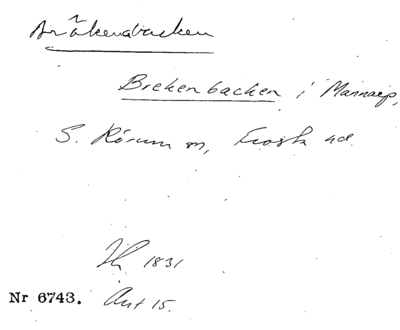 Bräkenbacken
Brekenbacken i Mannarp,
S. Rörum sn, Frosta hd
1831
Nr 6743. Ant 15.